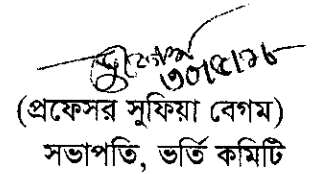 ৩০/৫/১৮
(প্রফেসর সুফিয়া বেগম)
সভাপতি, ভর্তি কমিটি